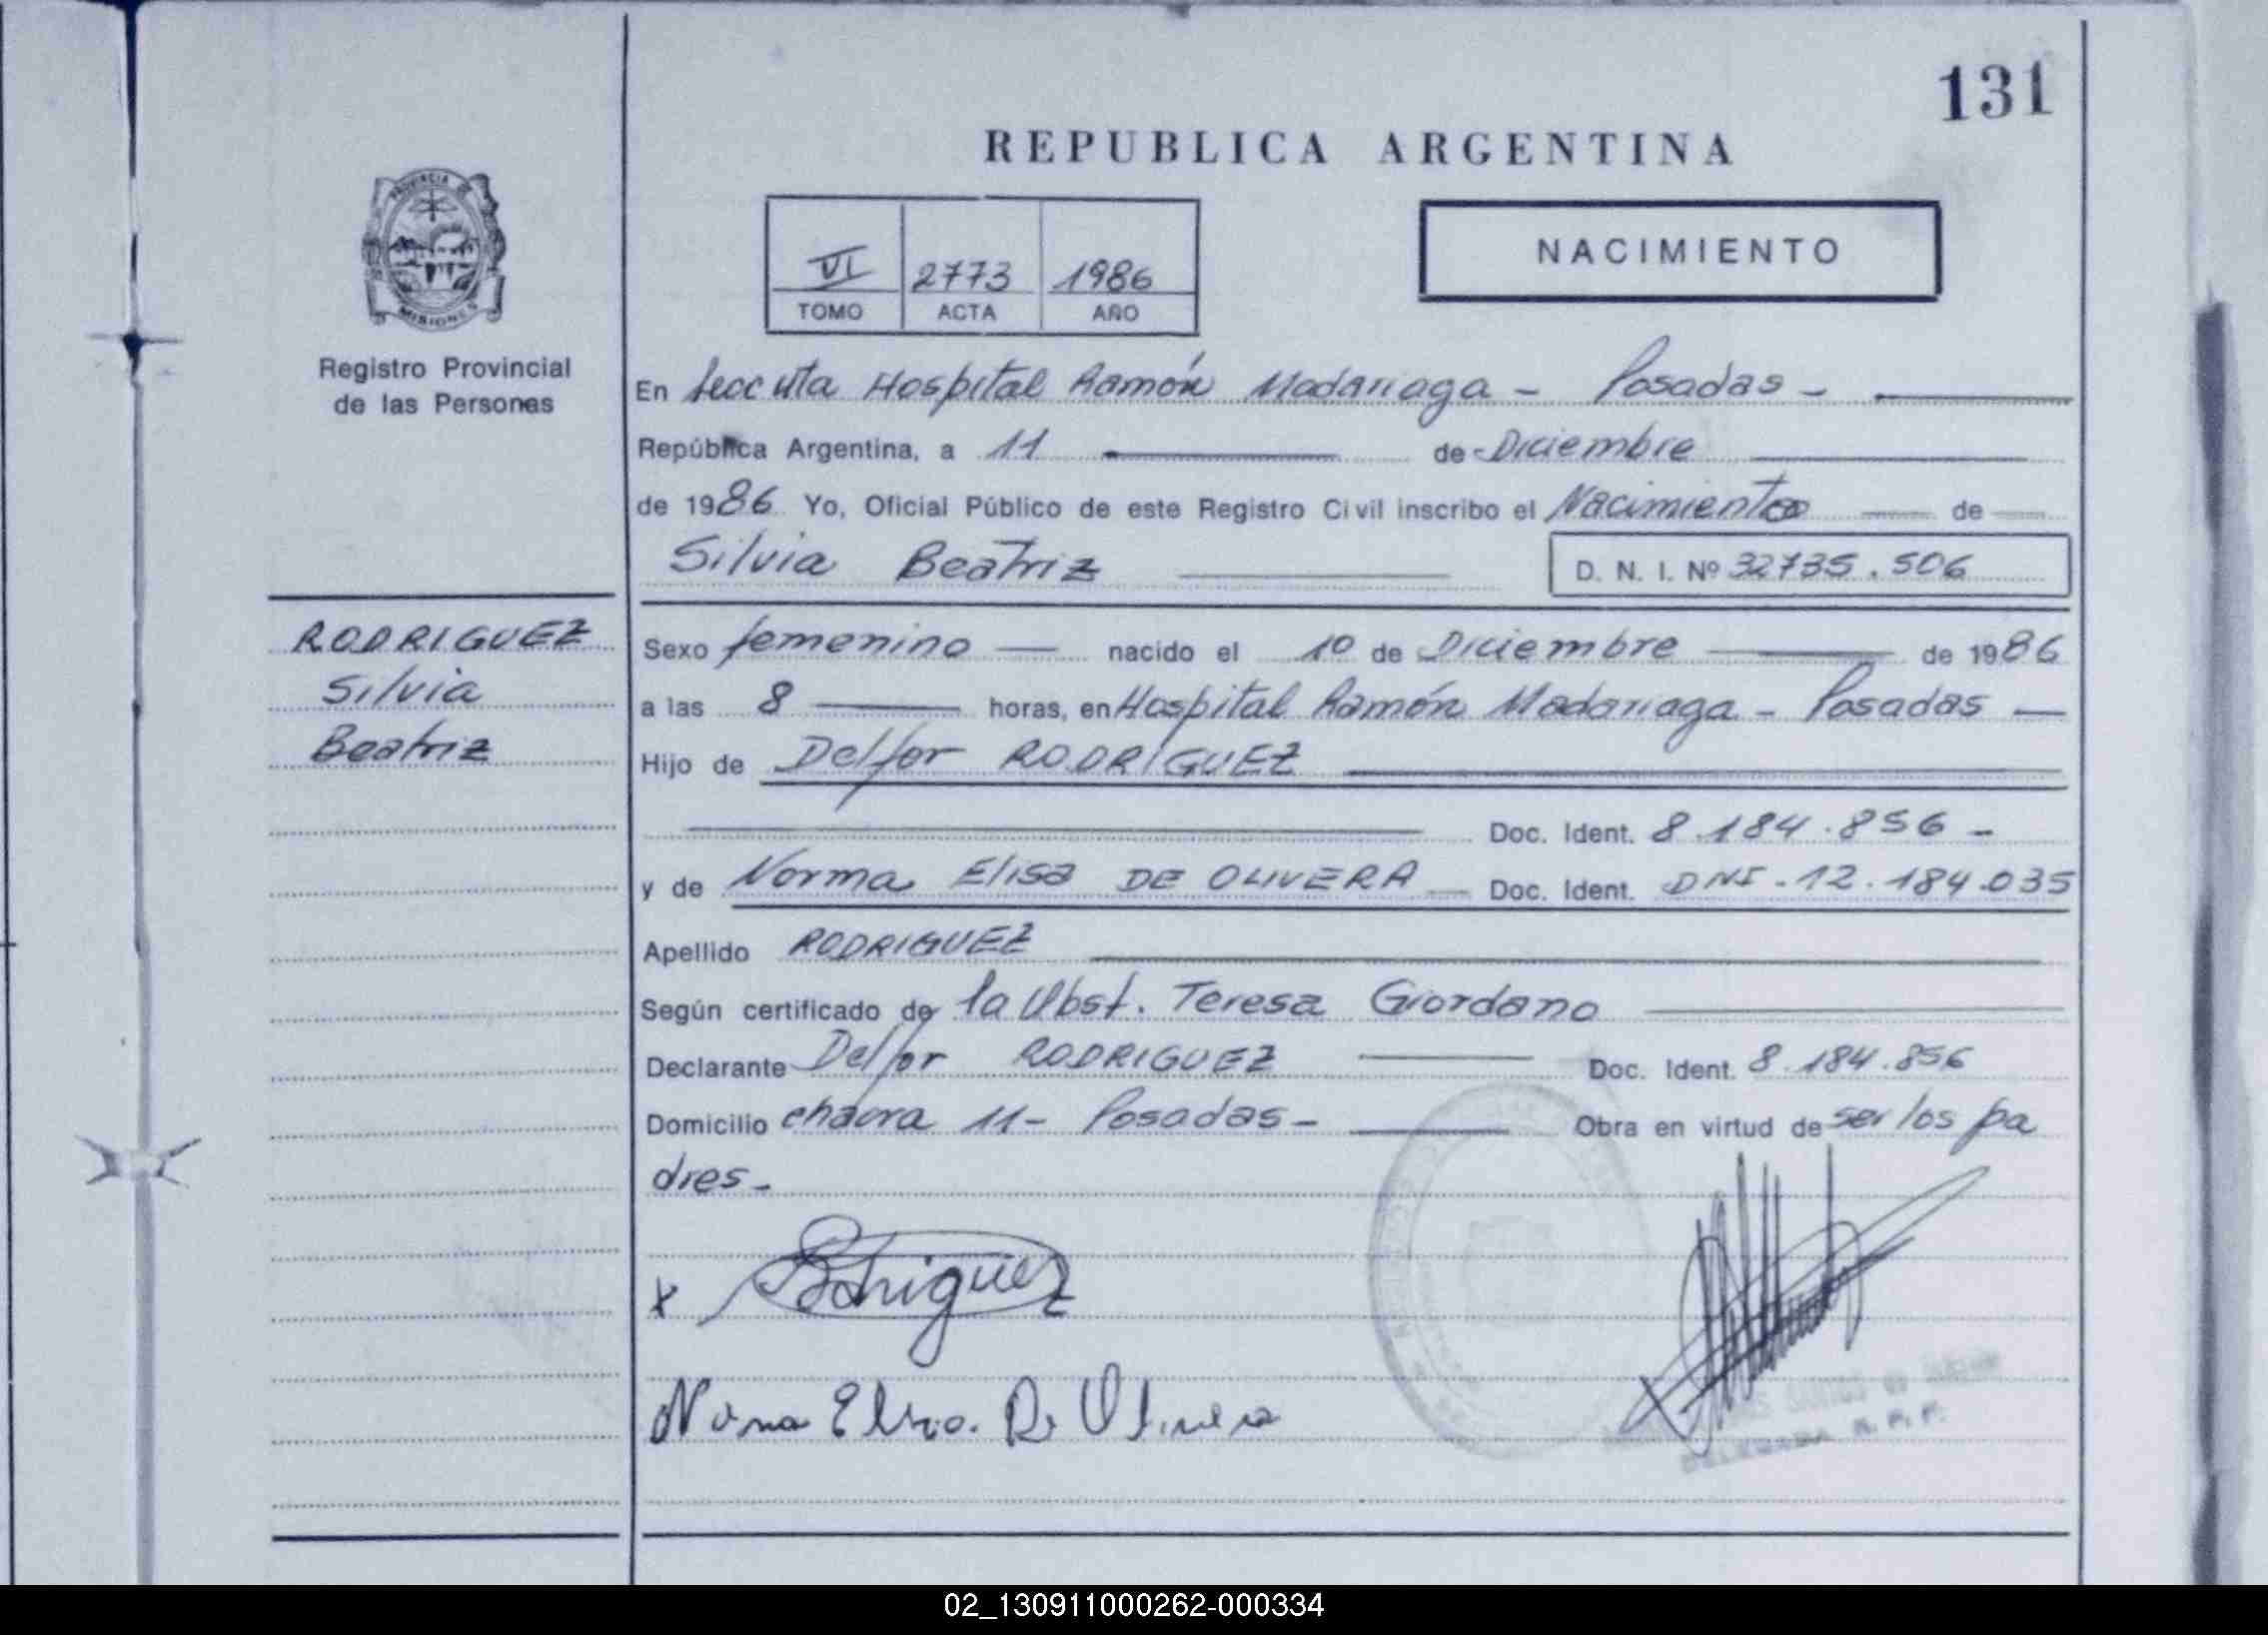 131
REPUBLICA ARGENTINA
PROVINCIA DE
MISIONES
VI 2773 1986
TOMO ACTA AÑO
NACIMIENTO
Registro Provincial
de las Personas
En Secc uta Hospital Ramón Madariaga - Posadas -
República Argentina, a 11 de Diciembre
de 1986 Yo, Oficial Público de este Registro Civil inscribo el Nacimiento de
Silvia Beatriz D. N. I. Nº 32735.506
RODRIGUEZ
Silvia
Beatriz
Sexo femenino nacido el 10 de Diciembre de 1986
a las 8 horas, en Hospital Ramón Madariaga - Posadas
Hijo de Delfor RODRIGUEZ
Doc. Ident. 8.184.856 -
y de Norma Elisa DE OLIVERA Doc. Ident. DNI. 12.184.035
Apellido RODRIGUEZ
Según certificado de la Obst. Teresa Giordano
Declarante Delfor RODRIGUEZ Doc. Ident. 8.184.856
Domicilio chacra 11 - Posadas - Obra en virtud de ser los pa
dres -
x Rodriguez
Norma Elisa. De Olivera
DELEGADA R. P. P.
02_130911000262-000334